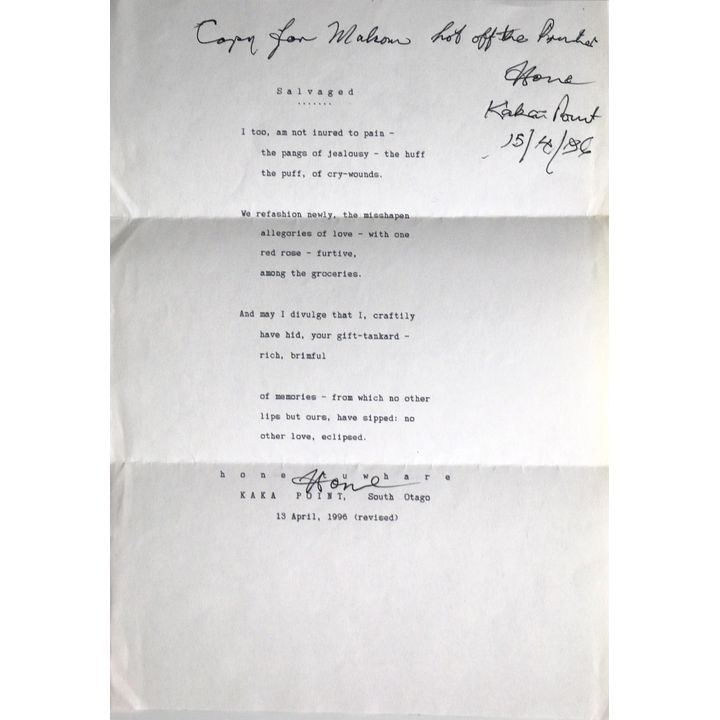 Copy for Malcom hot off the Printer
Hone
Kaka Point
15/4/96
Salvaged
.......
I too, am not inured to pain –
the pangs of jealousy – the huff
the puff, of cry-wounds.
We refashion newly, the misshapen
allegories of love – with one
red rose – furtive,
among the groceries.
And may I divulge that I, craftily
have hid, your gift-tankard –
rich, brimful
of memories – from which no other
lips but ours, have sipped: no
other love, eclipsed.
hone tuwhare
Hone
KAKA POINT, South Otago
13 April, 1996 (revised)